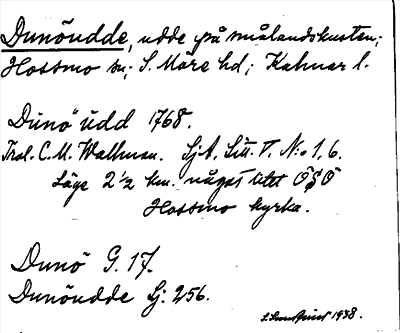 Dunöudde, udde på smålandskusten;
Hossmo sn; S. Möre hd; Kalmar l.
Dunö udd 1768.
Tral. C. M. Wallman. SjA, Litt. V, N:o 1, 6.
Läge 2 ½ km. något litet ÖSÖ
Hossmo kyrka.
Dunö G. 17.
Dunöudde Sj: 256.
1938.